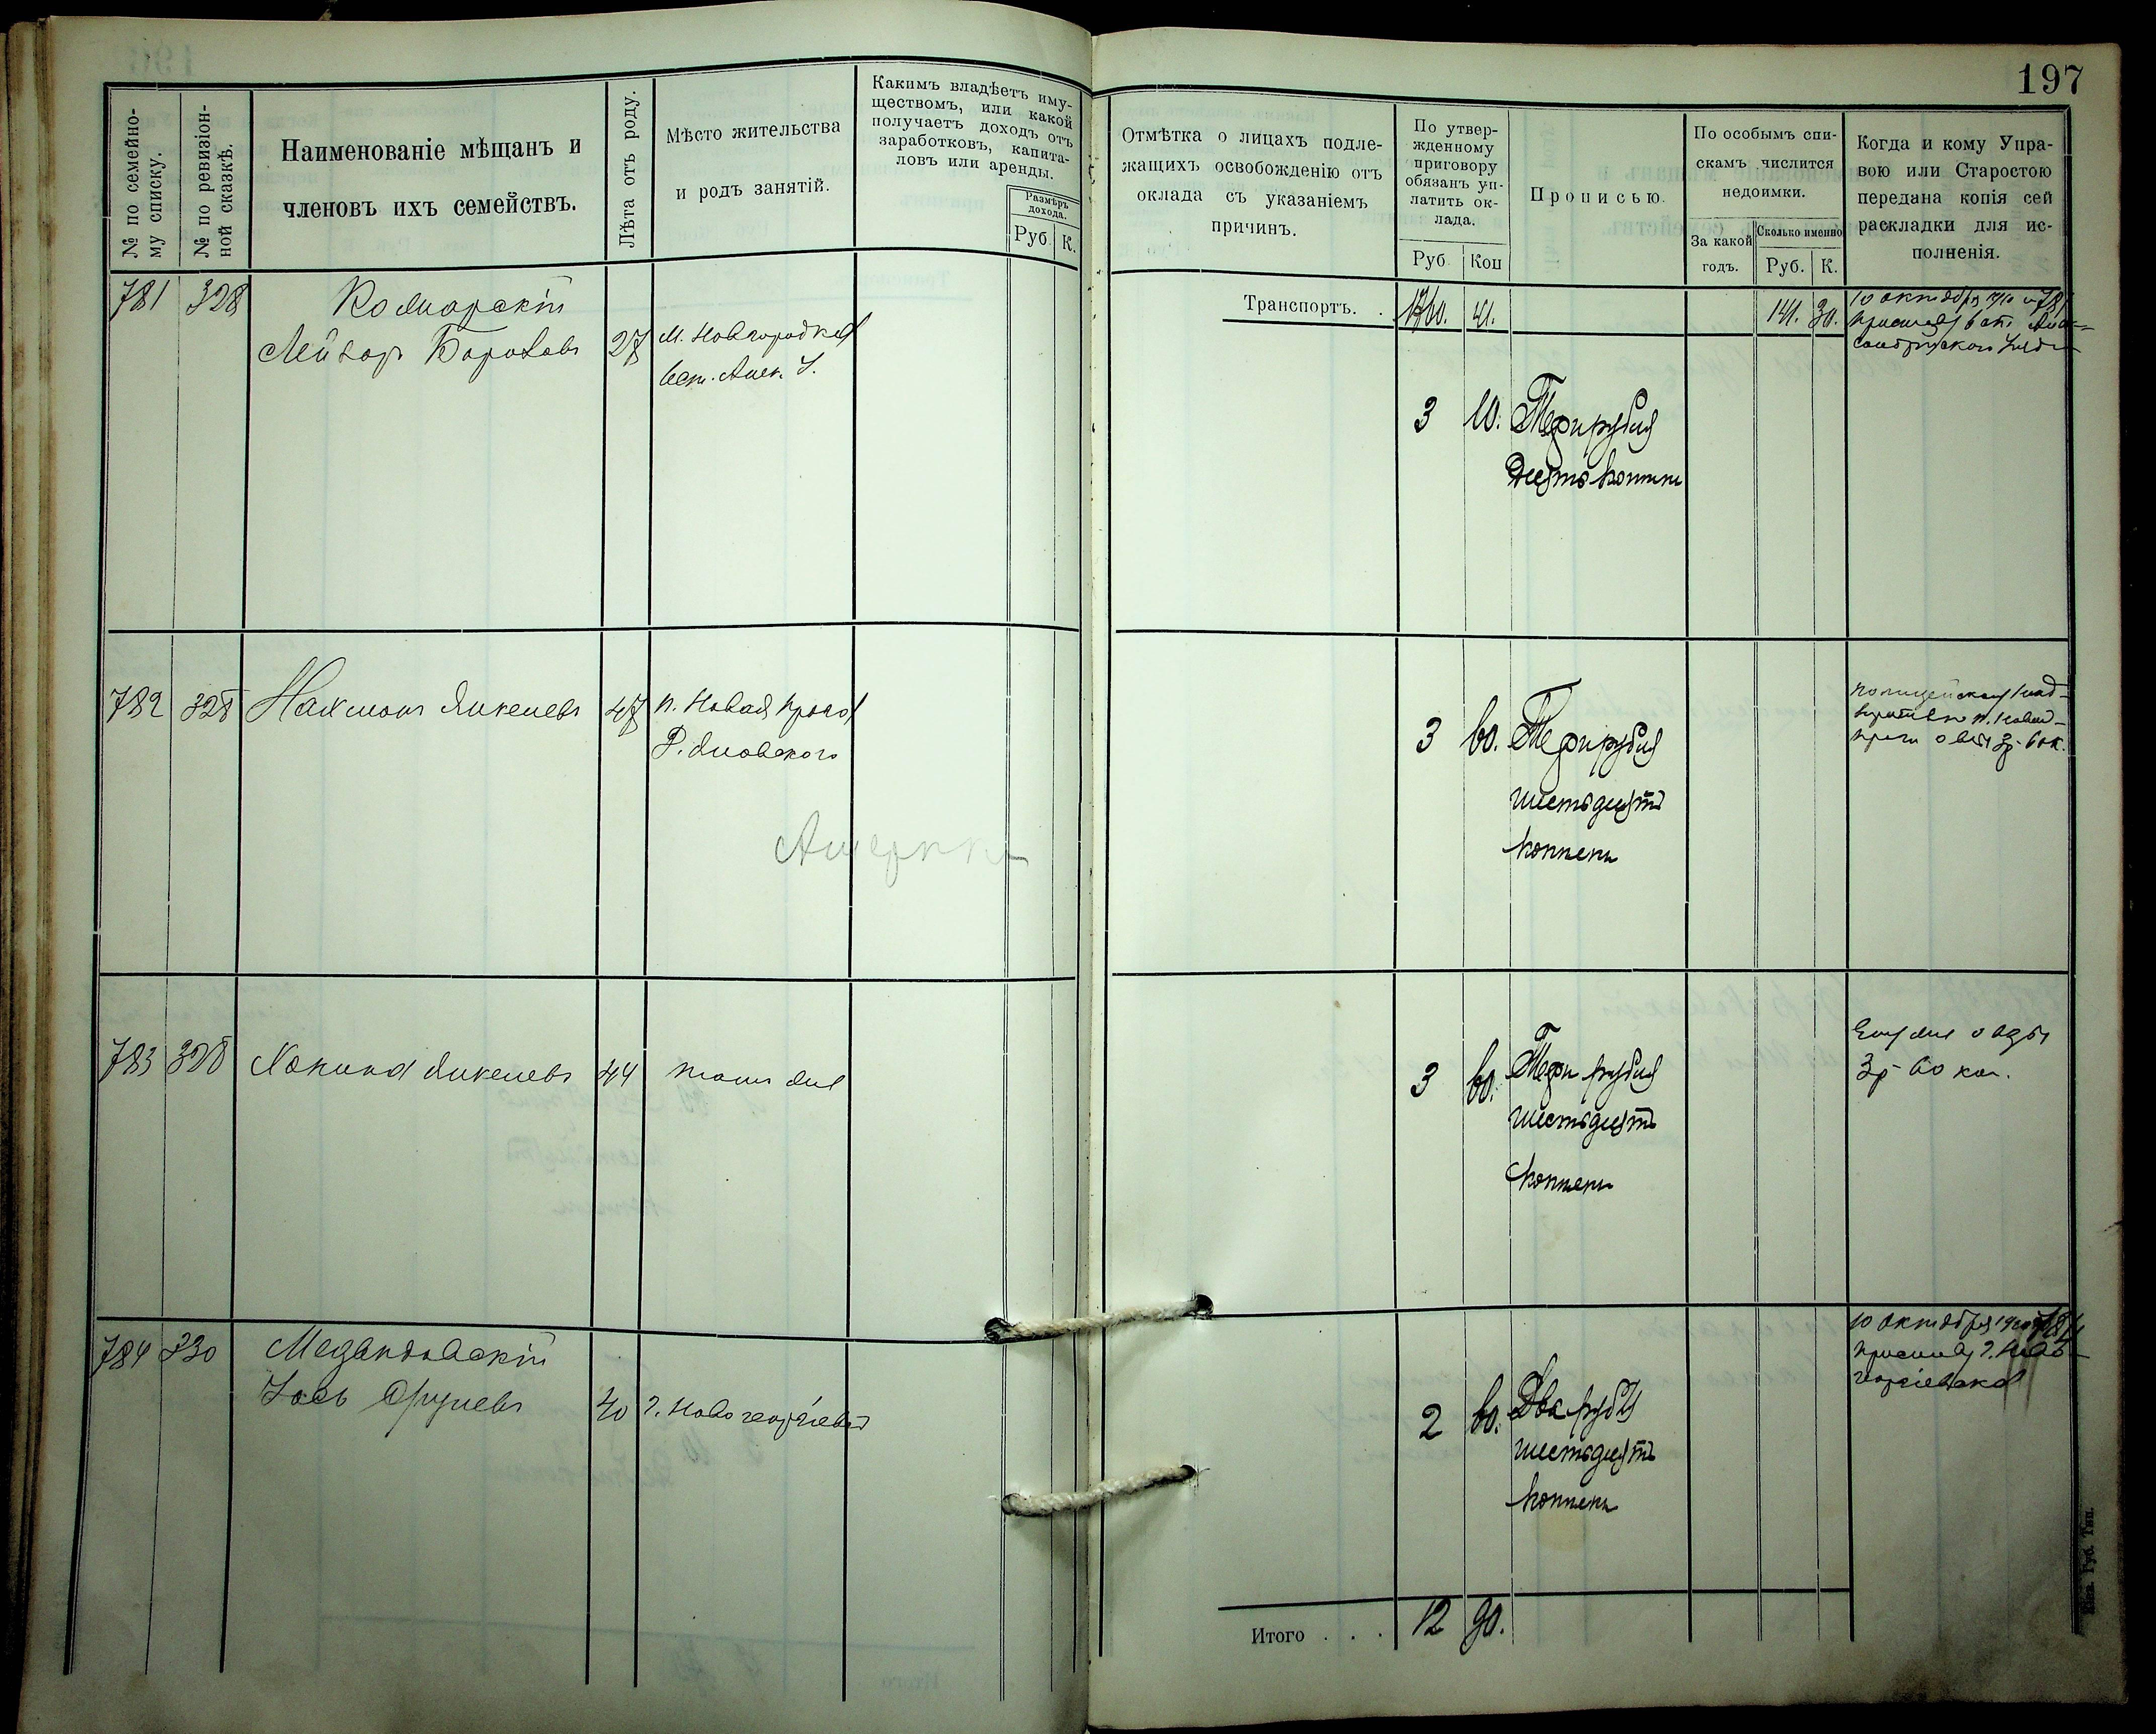 197
№ по семейно-
му списку.
№ по ревизіон-
ной сказкѣ.
Наименованіе мѣщанъ и
членовъ ихъ семействъ.
Лѣта отъ роду.
Мѣсто жительства
и родъ занятій.
Какимъ владѣетъ иму-
ществомъ, или какой
получаетъ доходъ отъ
заработковъ, капита-
ловъ или аренды.
Размѣръ
дохода.
Руб. К.
Отмѣтка о лицахъ подле-
жащихъ освобожденію отъ
оклада съ указаніемъ
причинъ.
По утвер-
жденному
приговору
обязанъ уп-
латить ок-
лада.
Руб. Коп
Прописью.
По особымъ спи-
скамъ числится
недоимки.
За какой
годъ.
Сколько именно
Руб. К.
Когда и кому Упра-
вою или Старостою
передана копія сей
раскладки для ис-
полненія.
Транспортъ. . 41. 141. 30.
781 328 Коморскій
Лейзоръ Бороховъ 27 М. Новгородка
Алек. У.
3 10. Три рубля
Десять копѣекъ
10 октября 1910 № 781
приставу 6 ст. Алек-
сандрійскаго уѣзда
782 328 Нахманъ Янкелевъ 47 п. Новая Прага
Америка
3 60. Три рубля
шестьдесятъ
копѣекъ
полицейскому над-
зирателю п. Новой-
Праги о вз. 3 р. 60 к.
783 328 Хаимъ Янкелевъ 44 тамъ же
3 60. Три рубля
шестьдесятъ
копѣекъ
Ему же о взы
3 р. 60 коп.
784 330
Іось Сруневъ 40 г. Новогеоргіевскъ
2 60. Два рубля
шестьдесятъ
копѣекъ
10 октября 1910 № 784
приставу г. Ново-
георгіевска
Итого . . . 12 90.